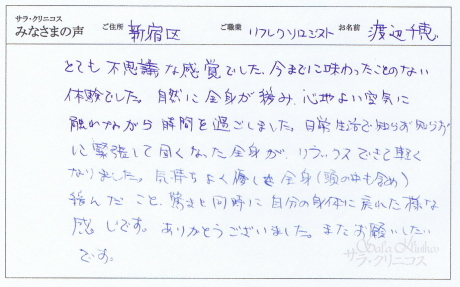 サラ・クリニコス
みなさまの声 ご住所 新宿区 ご職業 リフレクソロジスト お名前 渡辺千恵
とても不思議な感覚でした。今までに味わったことのない
体験でした。自然に全身が緩み、心地よい空気に
触れながら時間を過ごしました。日常生活で知らず知らず
に緊張して固くなった全身が、リラックスできて軽く
なりました。気持ちよく優しく全身(頭の中も含め)
緩んだこと、驚きと同時に自分の身体に戻れた様な
感じです。ありがとうございました。またお願いしたい
です。
Sala Klinikos
サラ・クリニコス